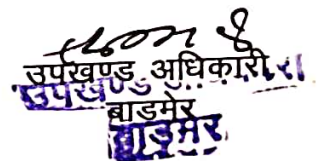 उपखण्ड अधिकारी
बाडमेर
उपखण्ड अधिकारी
बाडमेर